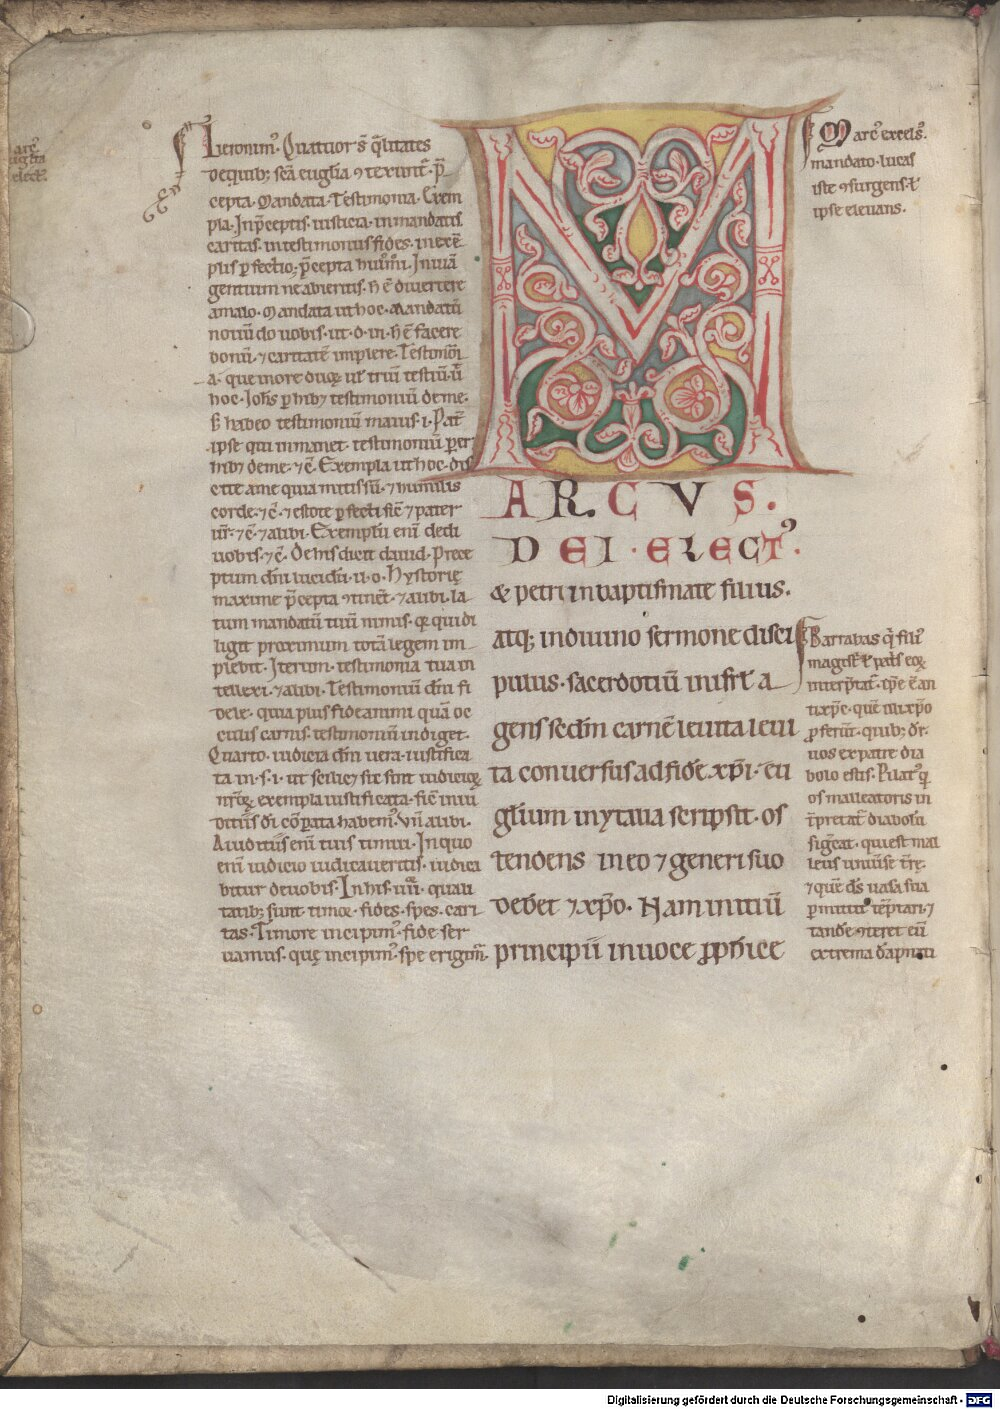 Ieronim᷒. Quatuor s̄ q̄litates
de quib; sc̄a euglīa ꝯtexunt᷑. p̄
cepta. Mandata. Testimonia. Exem
pla. In p̄ceptis iusticia. in mandatis
caritas. in testimoniis fides. in exē
plis ꝑfectio. p̄cepta
gentium ne abieritis. h̄ ē diuertere
a malo. Mandata ut hoc. Mandatū
nouū do uobis. ut. d. in. h̄ ē facere
bonū. ⁊ caritatē implere. Testimoni
a. que in ore duoꝝ uel triū testiū. ū
hoc. Ioh̄s ꝑhibꝫ testimoniū de me.
habeo testimoniū maius. i. Pat̄
ipse qui in manet. testimoniū per
hibꝫ de me. ⁊ c̄. Exempla ut hoc. dis
cite a me quia mitis sū. ⁊ humilis
corde. ⁊ c̄. ⁊ estote ꝑfecti sic̄ ⁊ pater
ur̄. ⁊ c̄. ⁊ alibi. Exemplū enī dedi
uobis. ⁊ c̄. De his dicit dauid. Prece
ptum dn̄i lucidū. u. o. Hystorię
maxime p̄cepta ꝯtinēt. ⁊ alibi. la
tum mandatū tuū nimis. qꝛ qui di
ligit proximum totā legem im
pleuit. Iterum. testimonia tua in
tellexi. ⁊ alibi. Testimoniū dn̄i fi
dele. quia plus fide animi quā oc
culis carnis. testimoniū indiget.
Quarto. iudicia dn̄i uera. iustifica
ta in. s. i. ut scilicꝫ sic̄ sint iudicioꝝ
nr̄oꝝ exempla iustificata. sic̄ in iu
ditiis dī cōparata habem᷒. Vn̄ alibi.
A iuditiis enī tuis timui. In quo
enī iudicio iudicaueritis. iudica
bitur de uobis. In his. iiii. quali
tatib; sunt. timor. fides. spes. cari
tas. Timore incipim᷒. fide ser
uamus. quę incipim᷒. spe erigim᷒.
MARCVS.
DEI. ELECT᷒.
& petri in baptismate filius.
atq; in diuino sermone disci
pulus. sacerdotiū in isrl̄ a
gens secdm̄ carnē leuita. leui
ta conuersus ad fidē xp̄i. eu
glīum in ytalia scripsit. os
tendens in eo ⁊ generi suo
deberet ⁊ xp̄o. Nam initiū
principii in uoce ꝓph̄ice
Marc᷒ excels᷒.
mandato. lucas
iste ꝯsurgens. ł
ipse eleuans.
Barrabas q̄ fili᷒
magistri ł patris eoꝝ
interp̄tat᷑. ip̄e ē an
tixp̄c. quē illi xp̄o
p̄ferūt. quib; dr̄.
uos ex patre dia
bolo estis. Pilat᷒ q̄
os malleatoris in
t̄pretat᷑ diabolū
sig̅ficat. qui est mal
leus uniuerse tr̄ę.
⁊ quē ds̄ uasa sua
ꝑmittit tēptari. ⁊
tandē ꝯteret eū
Digitalisierung gefördert durch die Deutsche Forschungsgemeinschaft - DFG